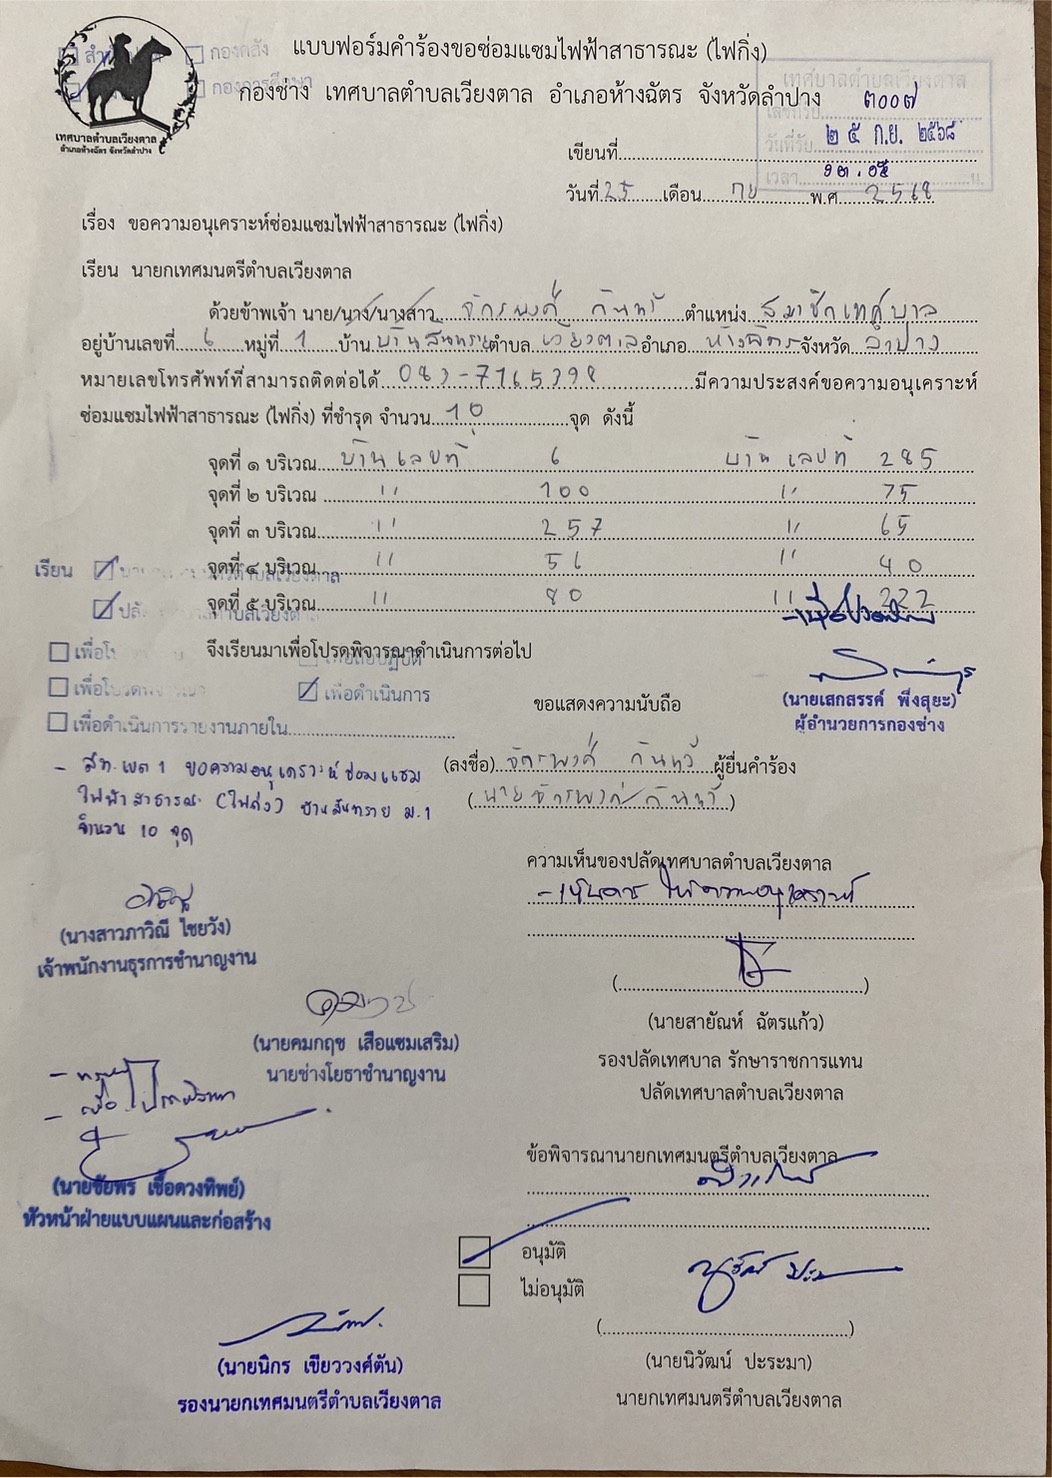 แบบฟอร์มคำร้องขอซ่อมแซมไฟฟ้าสาธารณะ (ไฟกิ่ง)
กองช่าง เทศบาลตำบลเวียงตาล อำเภอห้างฉัตร จังหวัดลำปาง
กองคลัง
กองการศึกษา
เทศบาลตำบลเวียงตาล
อำเภอห้างฉัตร จังหวัดลำปาง
เทศบาลตำบลเวียงตาล
เลขที่รับ ๓๐๐๗
วันที่รับ ๒๕ ก.ย. ๒๕๖๘
เวลา ๑๓.๐๕ น.
เขียนที่
วันที่ 25 เดือน กย พ.ศ. 2568
เรื่อง ขอความอนุเคราะห์ซ่อมแซมไฟฟ้าสาธารณะ (ไฟกิ่ง)
เรียน นายกเทศมนตรีตำบลเวียงตาล
ด้วยข้าพเจ้า นาย/นาง/นางสาว จักรพงศ์ กันทวี ตำแหน่ง สมาชิกเทศบาล
อยู่บ้านเลขที่ 6 หมู่ที่ 1 บ้าน บ้านสันทราย ตำบล เวียงตาล อำเภอ ห้างฉัตร จังหวัด ลำปาง
หมายเลขโทรศัพท์ที่สามารถติดต่อได้ มีความประสงค์ขอความอนุเคราะห์
ซ่อมแซมไฟฟ้าสาธารณะ (ไฟกิ่ง) ที่ชำรุด จำนวน 10 จุด ดังนี้
จุดที่ ๑ บริเวณ บ้านเลขที่ 6 บ้านเลขที่ 285
จุดที่ ๒ บริเวณ " 100 " 75
จุดที่ ๓ บริเวณ " 257 " 65
จุดที่ ๔ บริเวณ " 56 " 40
จุดที่ ๕ บริเวณ " 80 " 222
เรียน
จึงเรียนมาเพื่อโปรดพิจารณาดำเนินการต่อไป
เพื่อดำเนินการ
เพื่อดำเนินการรายงานภายใน
(นายเสกสรรค์ พึ่งสุยะ)
ผู้อำนวยการกองช่าง
ขอแสดงความนับถือ
(ลงชื่อ) จักรพงศ์ กันทวี ผู้ยื่นคำร้อง
(นายจักรพงศ์ กันทวี)
- สท.เขต 1 ขอความอนุเคราะห์ซ่อมแซม
ไฟฟ้าสาธารณะ (ไฟกิ่ง) บ้านสันทราย ม.1
จำนวน 10 จุด
ความเห็นของปลัดเทศบาลตำบลเวียงตาล
- เห็นควรให้ความอนุเคราะห์
(นางสาวภาวิณี ไชยวัง)
เจ้าพนักงานธุรการชำนาญงาน
(นายสายัณห์ ฉัตรแก้ว)
รองปลัดเทศบาล รักษาราชการแทน
ปลัดเทศบาลตำบลเวียงตาล
(นายคมกฤช เสือแซมเสริม)
นายช่างโยธาชำนาญงาน
- ทราบ
- เพื่อโปรดพิจารณา
(นายชัยพร เชื้อดวงทิพย์)
หัวหน้าฝ่ายแบบแผนและก่อสร้าง
ข้อพิจารณานายกเทศมนตรีตำบลเวียงตาล
อนุมัติ
ไม่อนุมัติ
(นายนิวัฒน์ ปะระมา)
นายกเทศมนตรีตำบลเวียงตาล
(นายนิกร เขียววงศ์ตัน)
รองนายกเทศมนตรีตำบลเวียงตาล